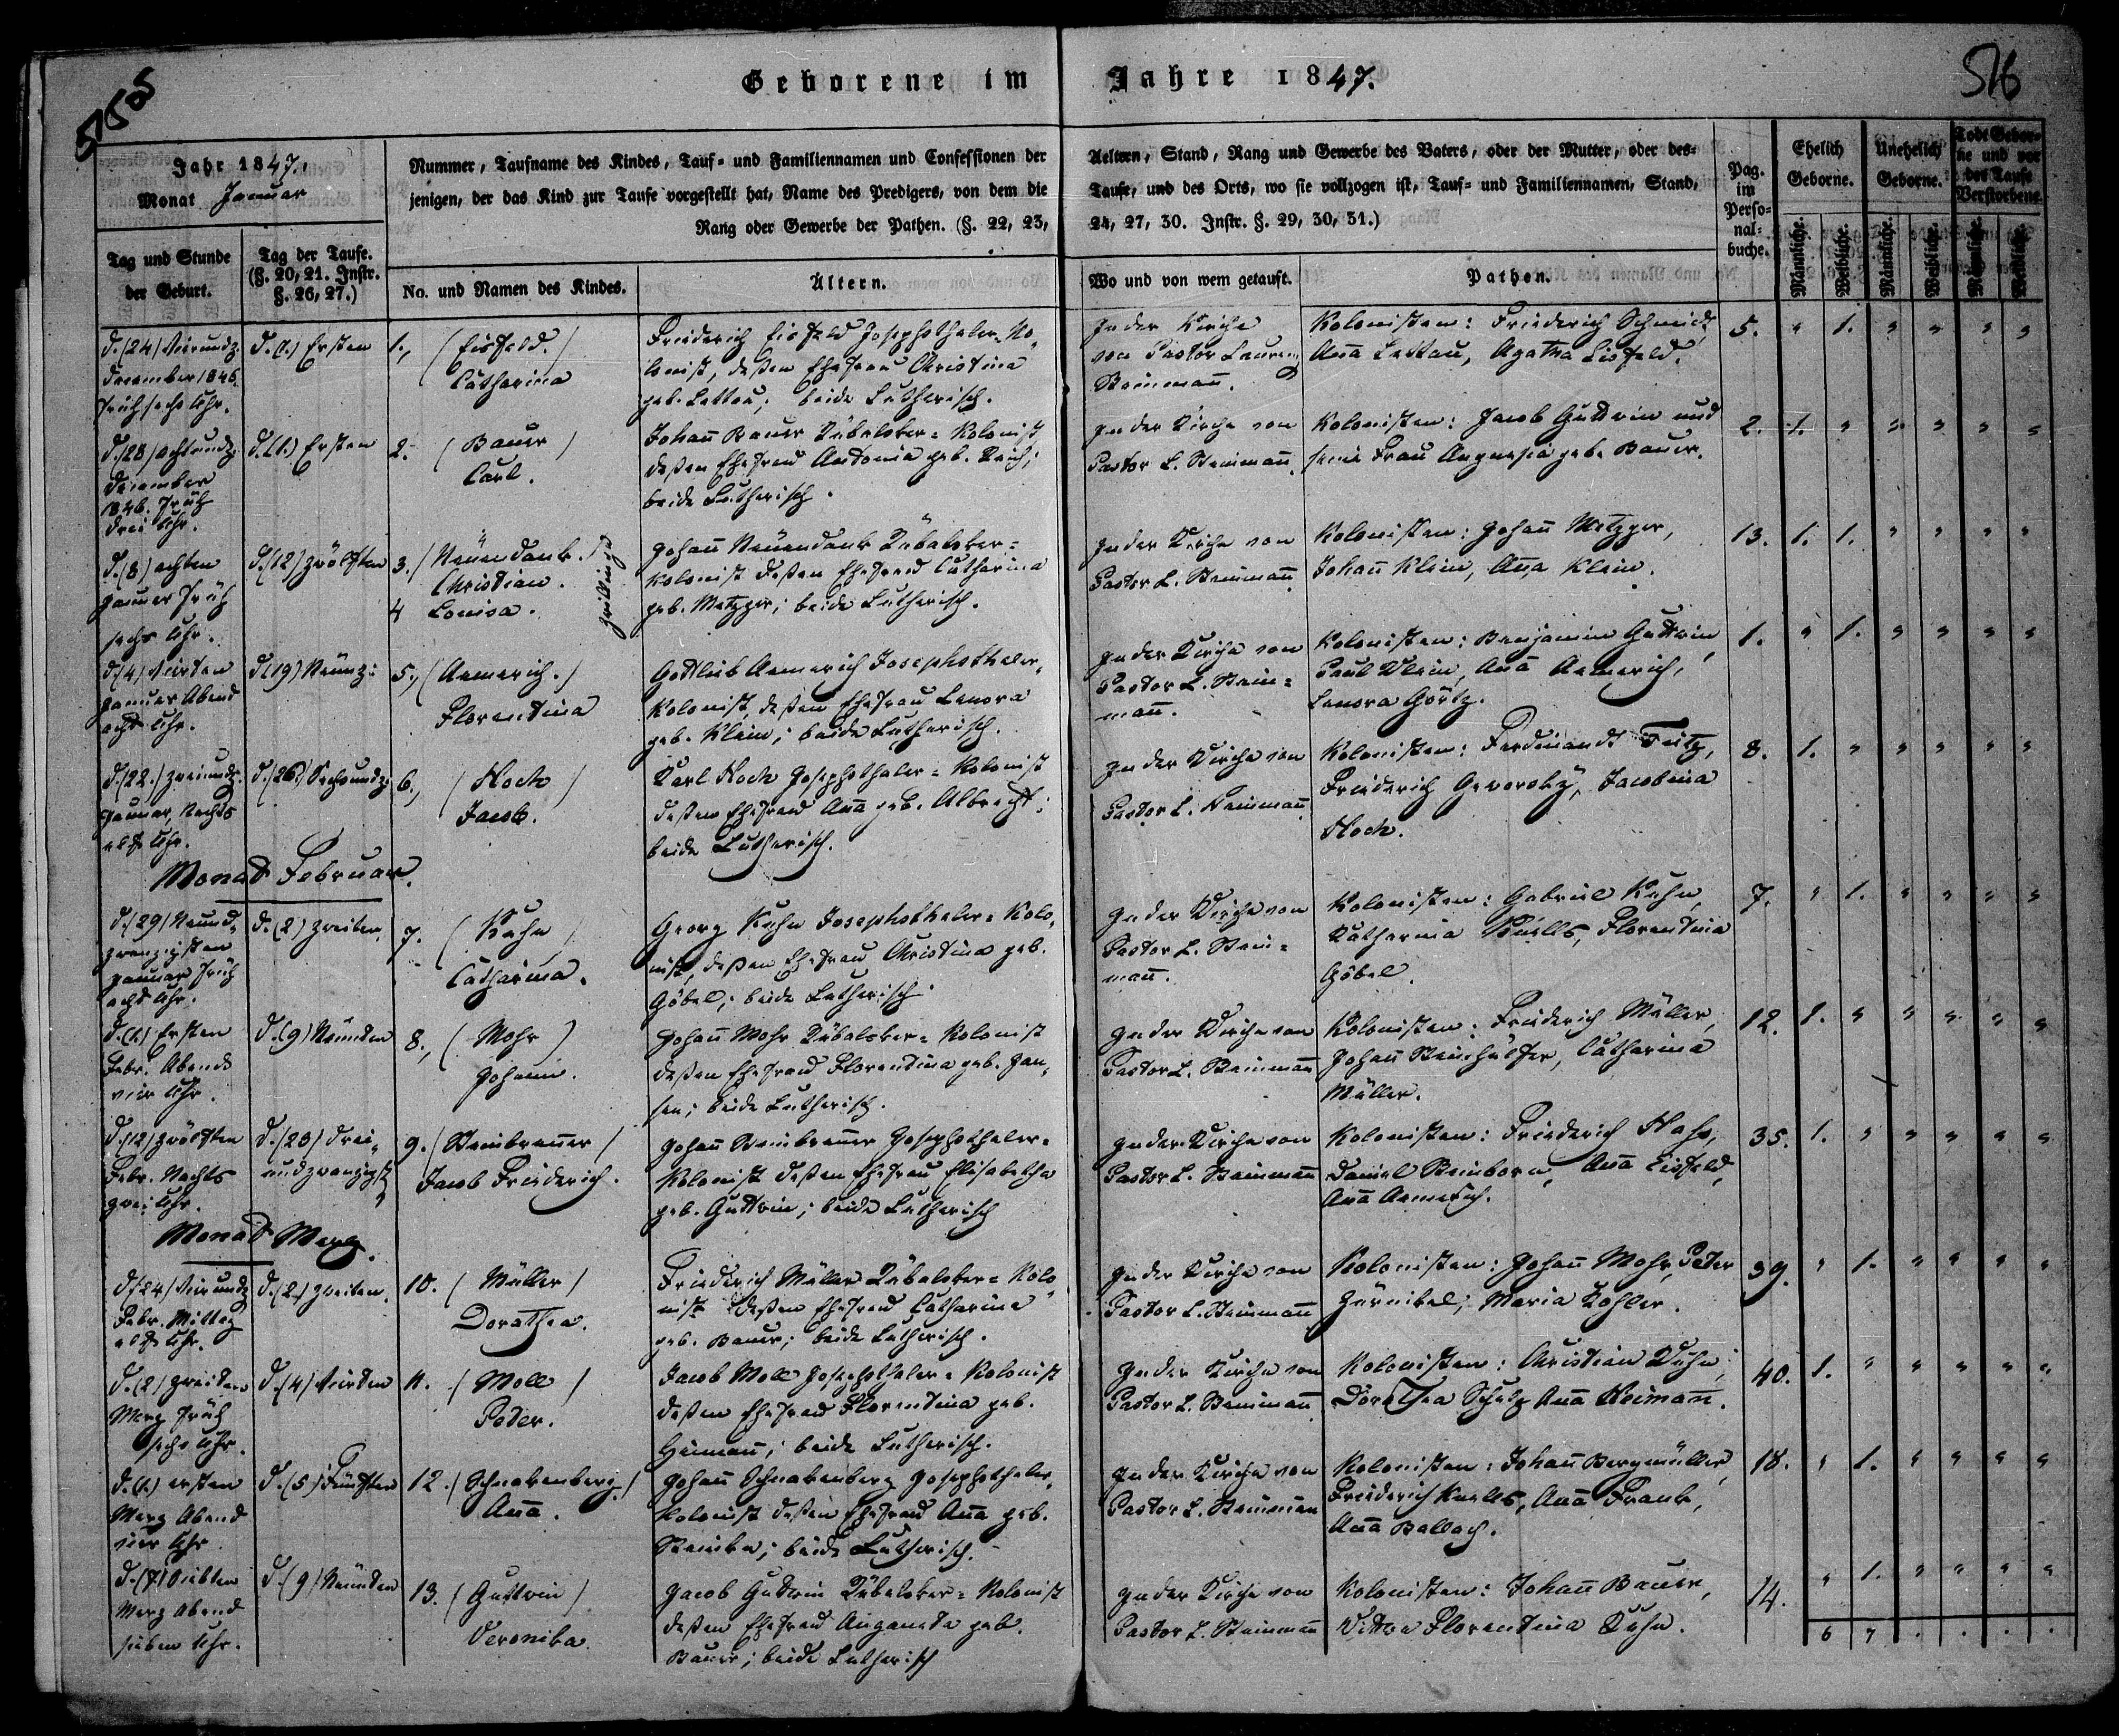 5155
516
Geborene im Jahre 1847.
Jahr 1847.
Monat Januar
Nummer, Taufname des Kindes, Tauf- und Familiennamen und Confessionen der Aeltern, Stand, Rang und Gewerbe des Vaters, oder der Mutter, oder des-
jenigen, der das Kind zur Taufe vorgestellt hat, Name des Predigers, von dem die Taufe, und des Orts, wo sie vollzogen ist, Tauf- und Familiennamen, Stand,
Rang oder Gewerbe der Pathen. (§. 22, 23, 24, 27, 30. Instr. §. 29, 30, 31.)
Pag.
im
Perso-
nal-
buche.
Ehelich
Geborne.
Unehelich
Geborne.
Todt Gebor-
ne und vor
der Taufe
Verstorbene
Tag und Stunde
der Geburt.
Tag der Taufe.
(§. 20, 21. Instr.
§. 26, 27.)
No. und Namen des Kindes.
Ältern.
Wo und von wem getauft.
Pathen.
Männliche.
Weibliche.
Männliche.
Weibliche.
Männliche.
Weibliche.
d. (24) Vierundz.
December 1846.
Früh sechs Uhr.
d. (1.) Ersten
1., (Eisfeld.)
Catharina
Friederich Eisfeld Josephsthaler-Ko-
lonist, deßen Ehefrau Christina
geb. Lettau; beide Lutherisch.
In der Kirche
von Pastor Laurenz
Steinmann.
Kolonisten: Friederich Schmidt,
Anna Lettau, Agatha Eisfeld.
5. " 1. " " " "
d. (28) achtundz.
December
1846. Früh
drei Uhr.
d. (1.) Ersten
2. (Bauer)
Carl.
Johann Bauer Rübalsker-Kolonist
deßen Ehefrau Antonia geb. Reich;
beide Lutherisch.
In der Kirche von
Pastor L. Steinmann.
Kolonisten: Jacob Guttwin und
seine Frau geb. Bauer.
2. 1. " " " " "
d. (8) achten
Januar Früh
sechs Uhr.
d. (12) zwölften
3. (Neuendank.)
Christian.
4 Louisa.
Zwillinge
Johann Neuendank Rübalsker-
Kolonist deßen Ehefrau Catharina
geb. Metzger; beide Lutherisch.
In der Kirche von
Pastor L. Steinmann
Kolonisten: Johann Metzger,
Johann Klein, Anna Klein.
13. 1. 1. " " " "
d. (4) Vierten
Januar Abend
acht Uhr.
d. (19) Neunz:
5., (Aemerich.)
Florentina
Gottlieb Aemerich Josephsthaler-
Kolonist, deßen Ehefrau Lenora
geb. Klein; beide Lutherisch.
In der Kirche von
Pastor L. Stein-
mann.
Kolonisten: Benjamin Guttwin,
Paul Klein, Anna Aemerich,
Lenora Görtz.
1. " 1. " " " "
d. (22.) zweiundz.
Januar, Nachts
elf Uhr.
d. (26.) Sechsundz:
6., (Hoch)
Jacob.
Karl Hoch Josephsthaler-Kolonist
deßen Ehefrau Anna geb. Albrecht;
beide Lutherisch.
In der Kirche von
Pastor L. Steinmann.
Kolonisten: Ferdinandt Teitz,
Friederich Geworsky, Jacobina
Hoch.
8. 1. " " " " "
Monat Februar.
d. (29) Neund-
zwanzigsten
Januar Früh
acht Uhr.
d. (2) zweiten,
7. (Kuhn)
Catharina.
Georg Kuhn Josephsthaler-Kolo-
nist, deßen Ehefrau Christina geb.
Göbel; beide Lutherisch.
In der Kirche von
Pastor L. Stein-
mann.
Kolonisten: Gabriel Kuhn,
Katharina Knells, Florentina
Göbel.
7. " 1. " " " "
d. (1.) Ersten
Febr. Abends
vier Uhr.
d. (9) Neünten
8., (Mohr)
Johann.
Johann Mohr Rübalsker-Kolonist
deßen Ehefrau Florentina geb. Jan-
sen; beide Lutherisch.
In der Kirche von
Pastor L. Steinmann
Kolonisten: Friederich Müller,
Johann Steinhülfer, Catharina
Müller.
12. 1. " " " " "
d. (12) zwölften
Febr. Nachts
zwei Uhr.
d. (23) Drei-
undzwanzigst
9. (Steinbrenner)
Jacob Friederich.
Johann Steinbrenner Josephsthaler-
Kolonist deßen Ehefrau Elisabetha
geb. Guttwin; beide Lutherisch
In der Kirche von
Pastor L. Steinmann
Kolonisten: Friederich Hahs,
Daniel Steinborn, Anna Eisfeld,
Anna Aemerich.
35. 1. " " " " "
Monat Merz.
d. (24) Vierundz
Febr. Mittag
elf Uhr.
d. (2) zweiten.
10. (Müller)
Dorathea.
Friederich Müller Rübalsker-Kolo
nist deßen Ehefrau Catharina
geb. Bauer; beide Lutherisch.
In der Kirche von
Pastor L. Steinmann
Kolonisten: Johann Mohr, Peter
Maria Kohler.
39. " 1. " " " "
d. (2) zweiten
Merz Früh
sechs Uhr.
d. (4) Vierten
11. (Moll)
Peter.
Jacob Moll Josephsthaler-Kolonist
deßen Ehefrau Florentina geb.
Heimann; beide Lutherisch.
In der Kirche von
Pastor L. Steinmann
Kolonisten: Christian Kuhn,
Dorathea Schulz Anna Heimann.
40. 1. " " " " "
d. (1.) ersten
Merz Abend
vier Uhr
d. (5) Fünften
12. (Schnakenberg)
Anna.
Johann Schnakenberg Josephsthaler-
Kolonist deßen Ehefrau Anna geb.
Steinke; beide Lutherisch.
In der Kirche von
Pastor L. Steinmann
Kolonisten: Johann Bergmüller,
Friederich Knells, Anna Frank,
Anna Ballach.
18. " 1. " " " "
d. (7) Siebten
Merz Abend
sieben Uhr.
d. (9) Neünten
13. (Guttwin)
Veronika.
Jacob Guttwin Rübalsker-Kolonist
deßen Ehefrau geb.
Bauer; beide Lutherisch
In der Kirche von
Pastor L. Steinmann
Kolonisten: Johann Bauer,
Wittwe Florentina Kuhn.
14. " 1. " " " "
6 7 . . . .